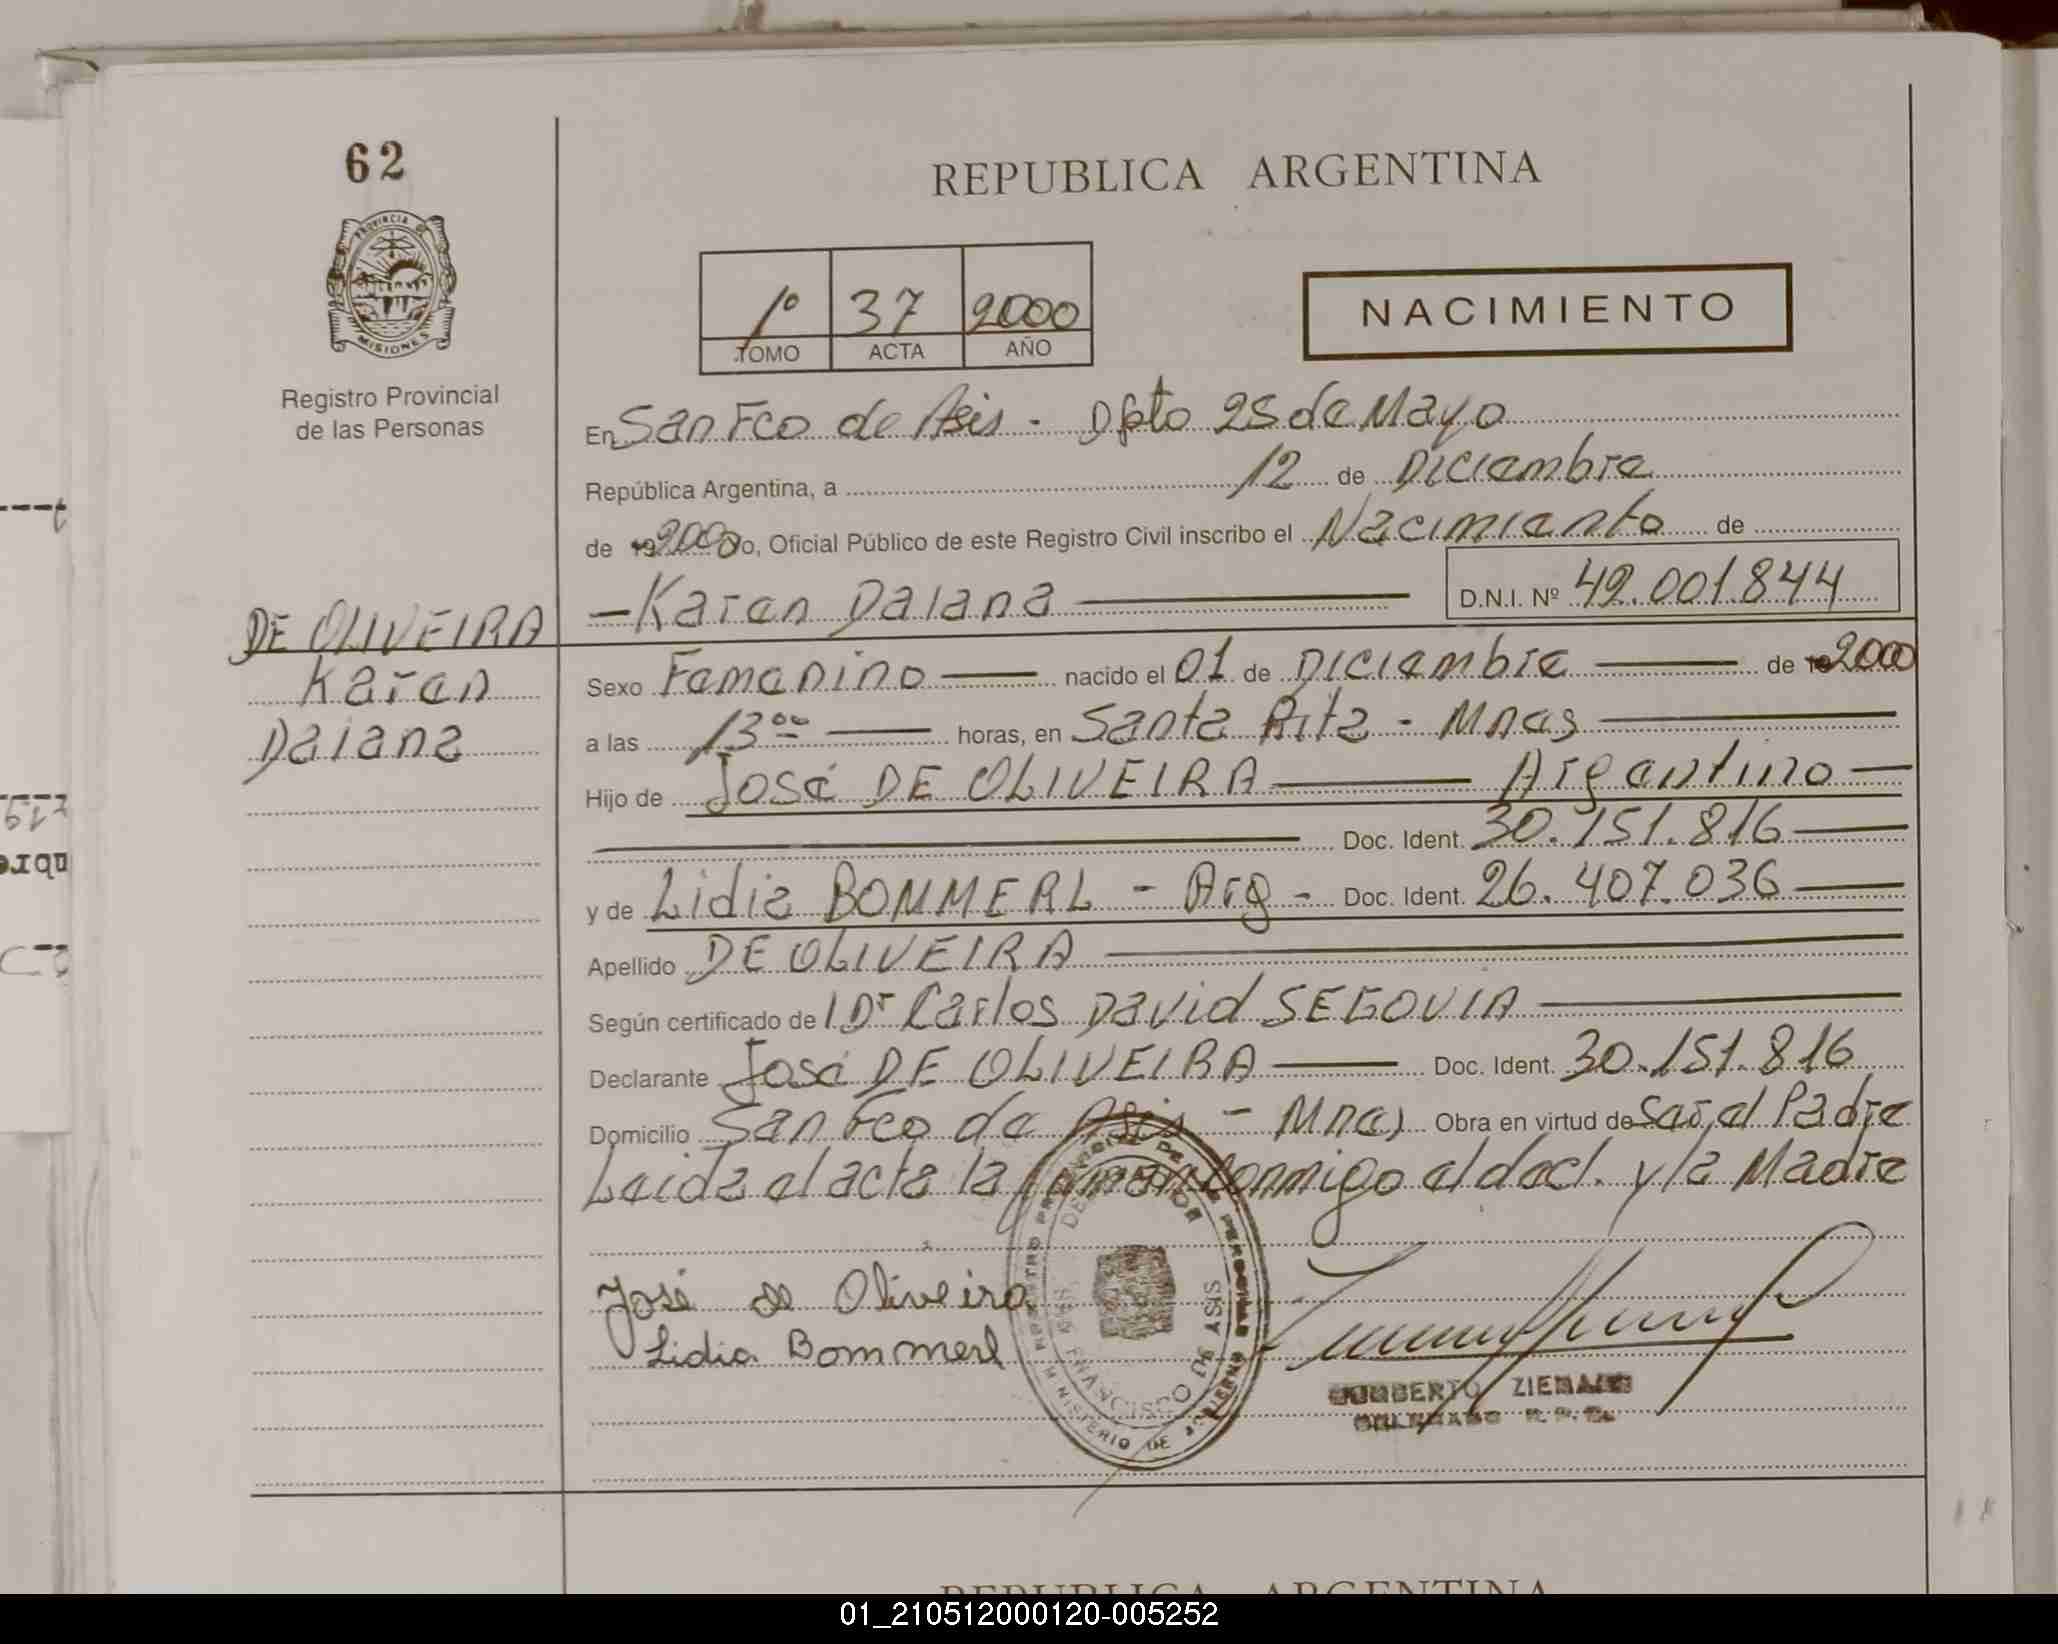 62
REPUBLICA ARGENTINA
PROVINCIA DE
MISIONES
Registro Provincial
de las Personas
1º 37 2000
TOMO ACTA AÑO
NACIMIENTO
En San Fco de Asis - Dpto 25 de Mayo
República Argentina, a 12 de Diciembre
de 19 2000 Yo, Oficial Público de este Registro Civil inscribo el Nacimiento de
- Karen Daiana
D.N.I. Nº 42.001.844
DE OLIVEIRA
Karen
Daiana
Sexo Femenino nacido el 01 de Diciembre de 19 2000
a las 13 oo horas, en Santa Rita - Mnes
Hijo de José DE OLIVEIRA Argentino
Doc. Ident. 30.151.816
y de Lidia BOMMERL - Arg - Doc. Ident. 26.407.036
Apellido DE OLIVEIRA
Según certificado del Dr Carlos David SEGOVIA
Declarante José DE OLIVEIRA Doc. Ident. 30.151.816
Domicilio San Fco de Asis - Mnes Obra en virtud de Ser el Padre
Leida el acta la firman conmigo el decl. y la Madre
José de Oliveira
Lidia Bommerl
REGISTRO PROVINCIAL DE LAS PERSONAS
MINISTERIO DE GOBIERNO
FRANCISCO DE ASIS
REPUBLICA ARGENTINA
01_210512000120-005252